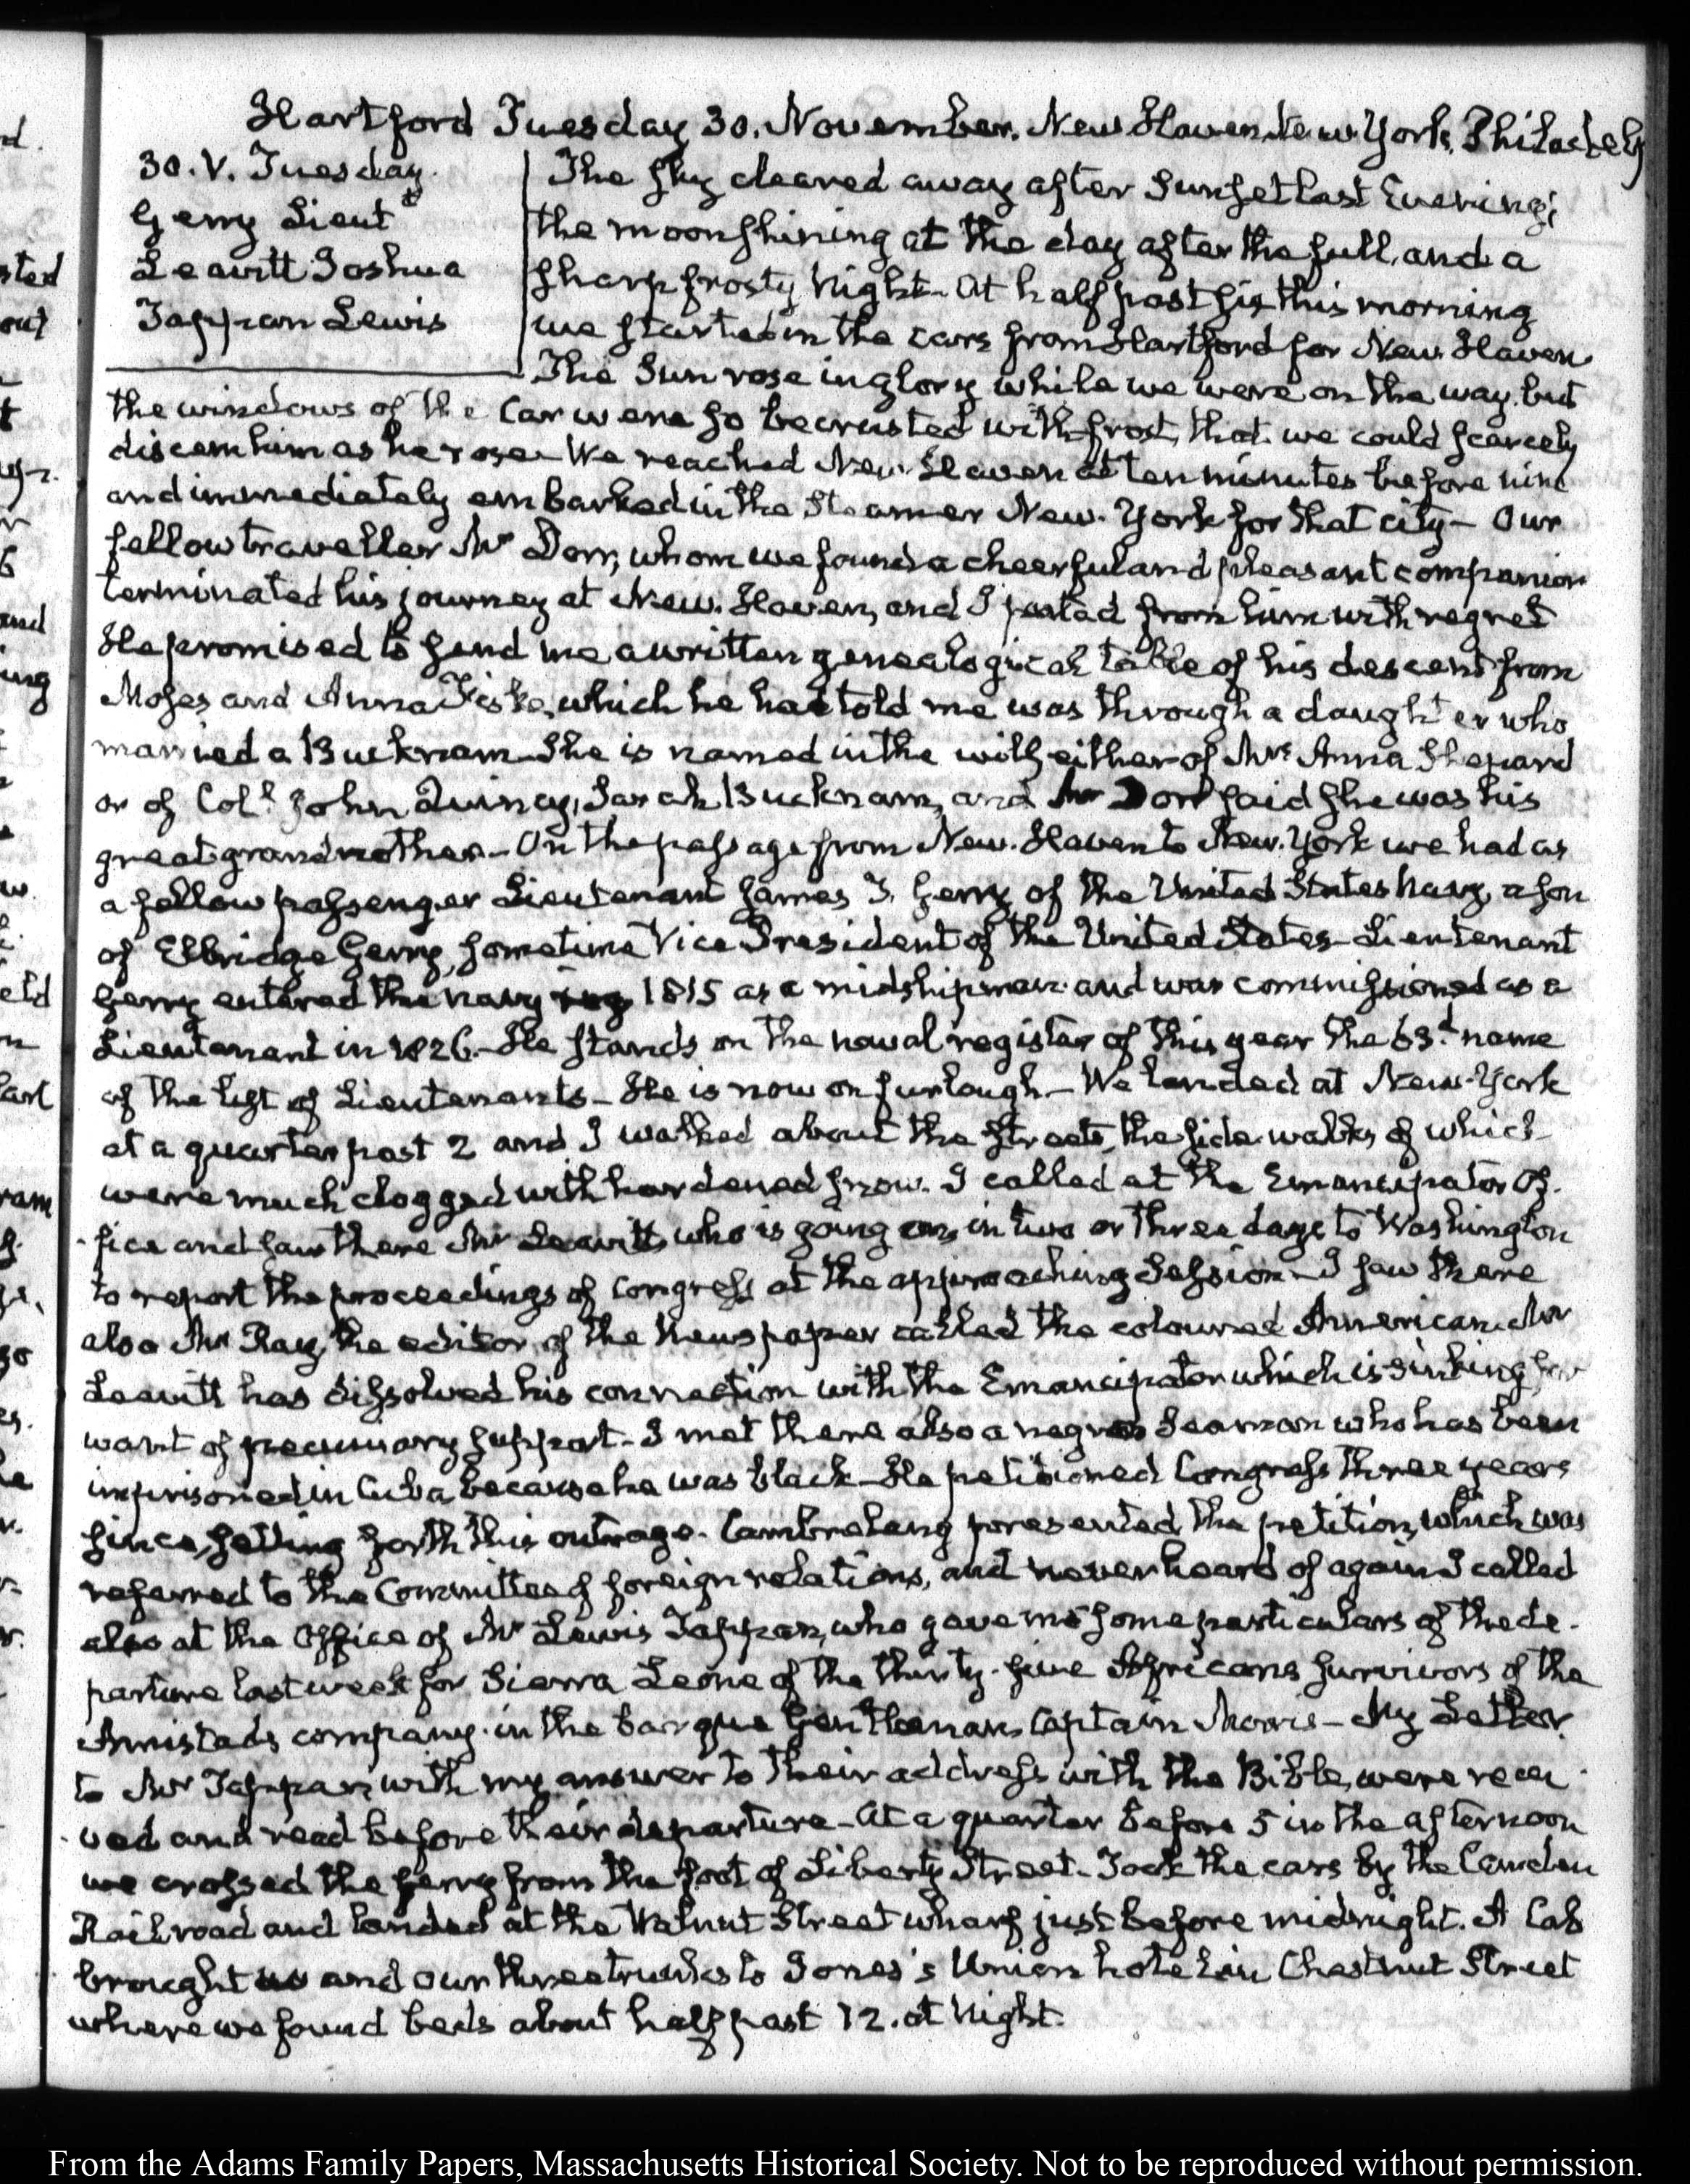 Hartford Tuesday 30. November. New Haven. New York. Philadelp
30. V. Tuesday.
Gerry Lieutt
Leavitt Joshua
Tappan Lewis
The sky cleared away after Sunset last Evening;
the moon shining at the day after the full, and a
sharp frosty Night. At half past six this morning
we started in the cars from Hartford for New Haven
The Sun rose in glory while we were on the way, but
the windows of the Car were so becrusted with frost, that we could scarcely
discern him as he rose. We reached New-Haven at ten minutes before nine
and immediately embarked in the Steamer New-York for that city — Our
fellow traveller Mr Dorr, whom we found a cheerful and pleasant companion
terminated his journey at New-Haven, and I parted from him with regret
He promised to send me a written genealogical table of his descent from
Moses and Anna Fiske, which he had told me was through a daughter who
married a Bucknam. She is named in the will either of Mrs Anna Shepard
or of Coll John Quincy, Sarah Bucknam, and Mr Dorr said she was his
great grandmother — On the passage from New-Haven to New-York we had as
a fellow passenger Lieutenant James T. Gerry of the United States Navy, a son
of Elbridge Gerry, sometime Vice President of the United States — Lieutenant
Gerry entered the navy in 1815 as a midshipman and was commissioned as a
Lieutenant in 1826. He stands on the naval register of this year the 63d name
of the list of Lieutenants — He is now on furlough — We landed at New-York
at a quarter past 2 and I walked about the streets, the side walks of which
were much clogged with hardened snow. I called at the Emancipator Of-
fice and saw there Mr Leavitt, who is going on, in two or three days to Washington
to report the proceedings of Congress at the approaching Session — I saw there
also Mr Ray, the editor of the Newspaper called the coloured American. Mr
Leavitt has dissolved his connection with the Emancipator which is sinking for
want of pecuniary support — I met there also a negro Seaman who has been
imprisoned in Cuba because he was black — He petitioned Congress three years
since, setting forth this outrage. Cambreleng presented the petition, which was
referred to the Committee of foreign relations, and never heard of again. I called
also at the Office of Mr Lewis Tappan, who gave me some particulars of the de-
parture last week for Sierra Leone of the thirty-five Africans survivors of the
Amistad's company in the barque Gentleman, Captain Morris — My Letter
to Mr Tappan, with my answer to their address with the Bible, were recei-
ved and read before their departure — At a quarter before 5 in the afternoon
we crossed the ferry from the foot of Liberty Street. Took the cars by the Camden
Railroad and landed at the Walnut Street wharf just before midnight. A Cab
brought us and our three trunks to Jones's Union hotel in Chestnut Street
where we found beds about half past 12. at Night.
From the Adams Family Papers, Massachusetts Historical Society. Not to be reproduced without permission.